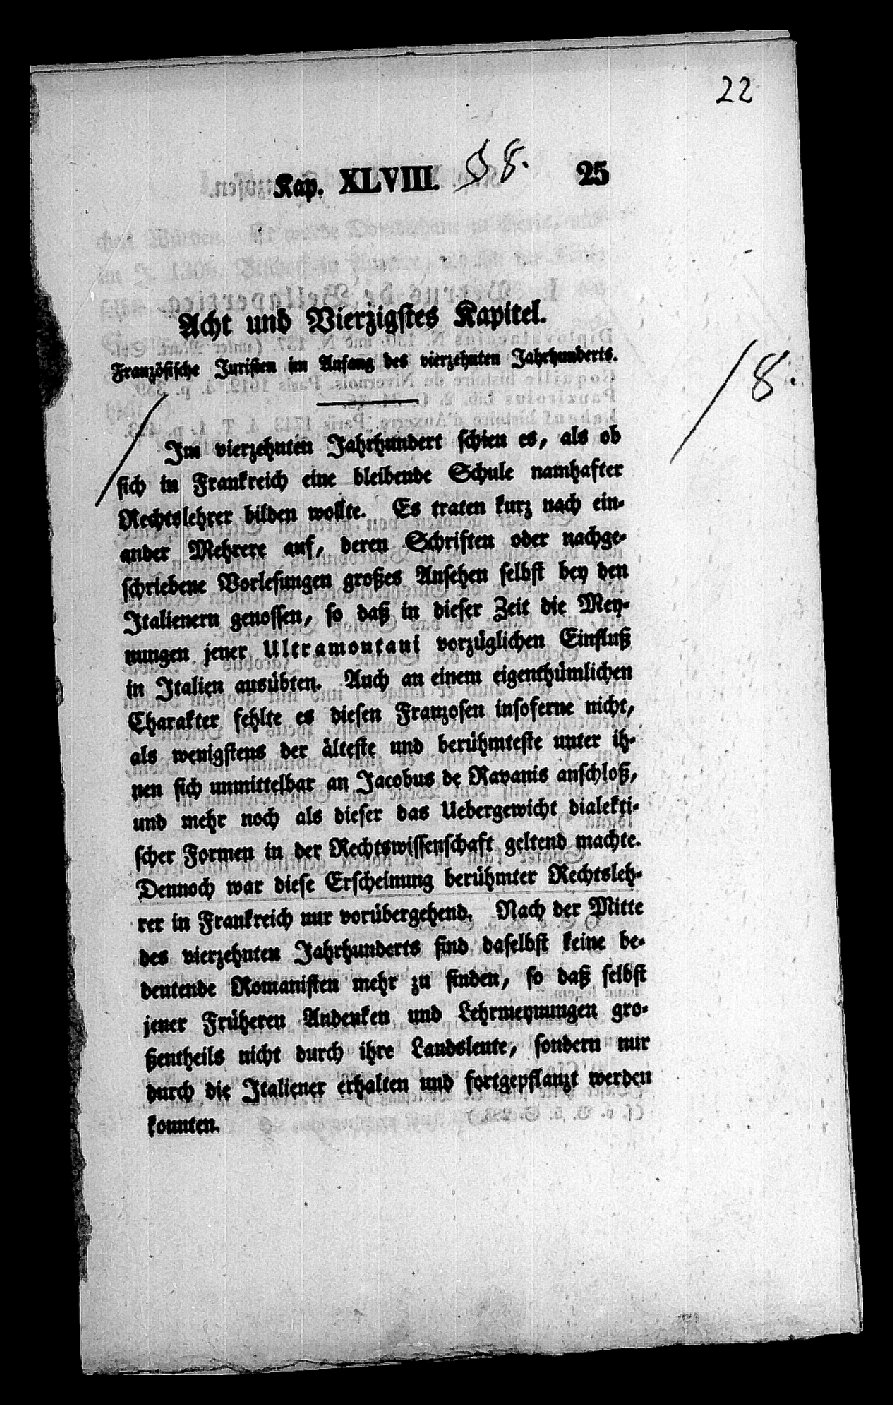 22
Kap. XLVIII. 8. 25
Acht und Vierzigstes Kapitel.
Französische Juristen im Anfang des vierzehnten Jahrhunderts.
8.
Im vierzehnten Jahrhundert schien es, als ob
sich in Frankreich eine bleibende Schule namhafter
Rechtslehrer bilden wollte. Es traten kurz nach ein-
ander Mehrere auf, deren Schriften oder nachge-
schriebene Vorlesungen großes Ansehen selbst bey den
Italienern genossen, so daß in dieser Zeit die Mey-
nungen jener Ultramontani vorzüglichen Einfluß
in Italien ausübten. Auch an einem eigenthümlichen
Charakter fehlte es diesen Franzosen insoferne nicht,
als wenigstens der älteste und berühmteste unter ih-
nen sich unmittelbar an Jacobus de Ravanis anschloß,
und mehr noch als dieser das Uebergewicht dialekti-
scher Formen in der Rechtswissenschaft geltend machte.
Dennoch war diese Erscheinung berühmter Rechtsleh-
rer in Frankreich nur vorübergehend. Nach der Mitte
des vierzehnten Jahrhunderts sind daselbst keine be-
deutende Romanisten mehr zu finden, so daß selbst
jener Früheren Andenken und Lehrmeynungen gro-
ßentheils nicht durch ihre Landsleute, sondern nur
durch die Italiener erhalten und fortgepflanzt werden
konnten.